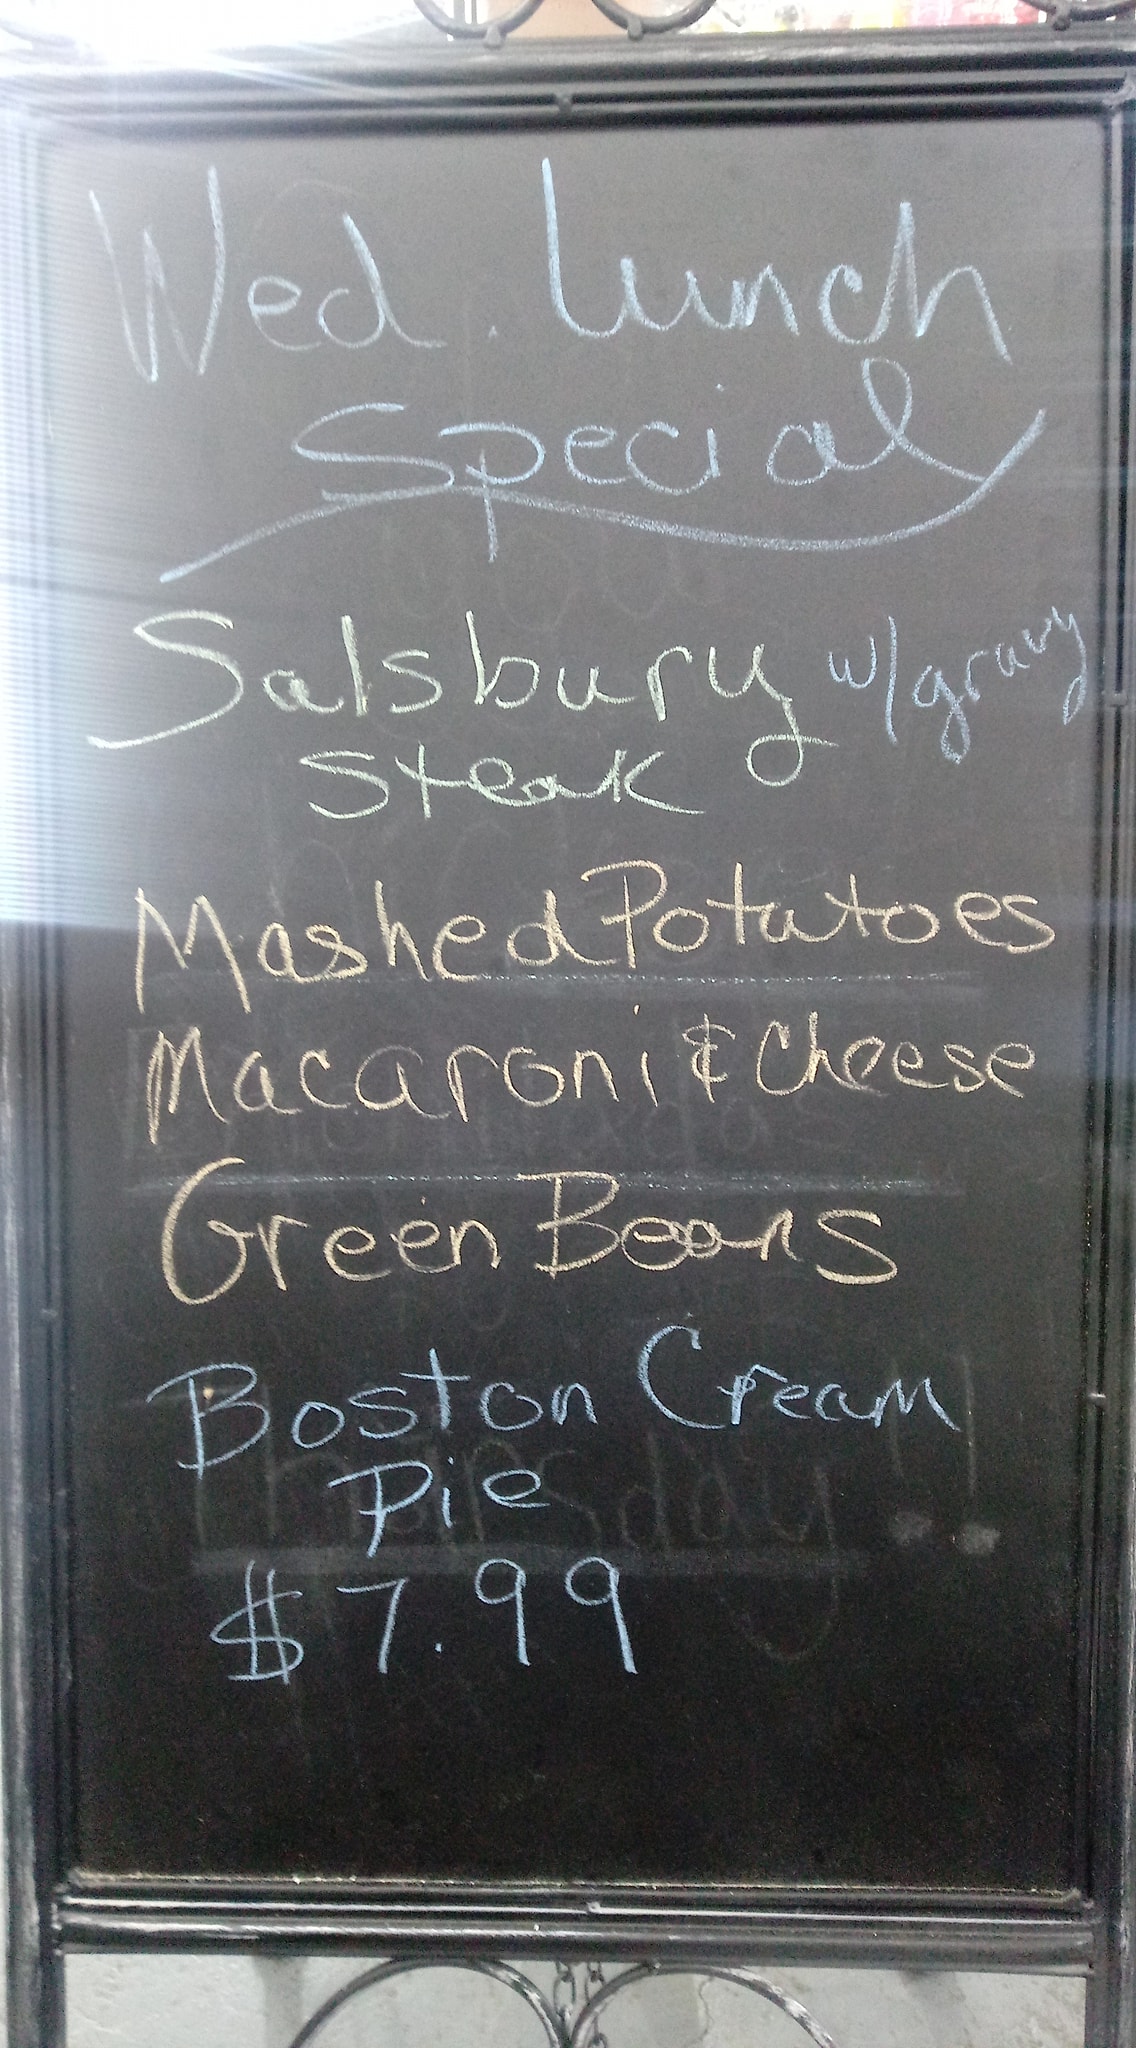 Wed. Lunch
Special
Salsbury w/gravy
Steak
Mashed Potatoes
Macaroni & Cheese
Green Beans
Boston Cream
Pie
$7.99